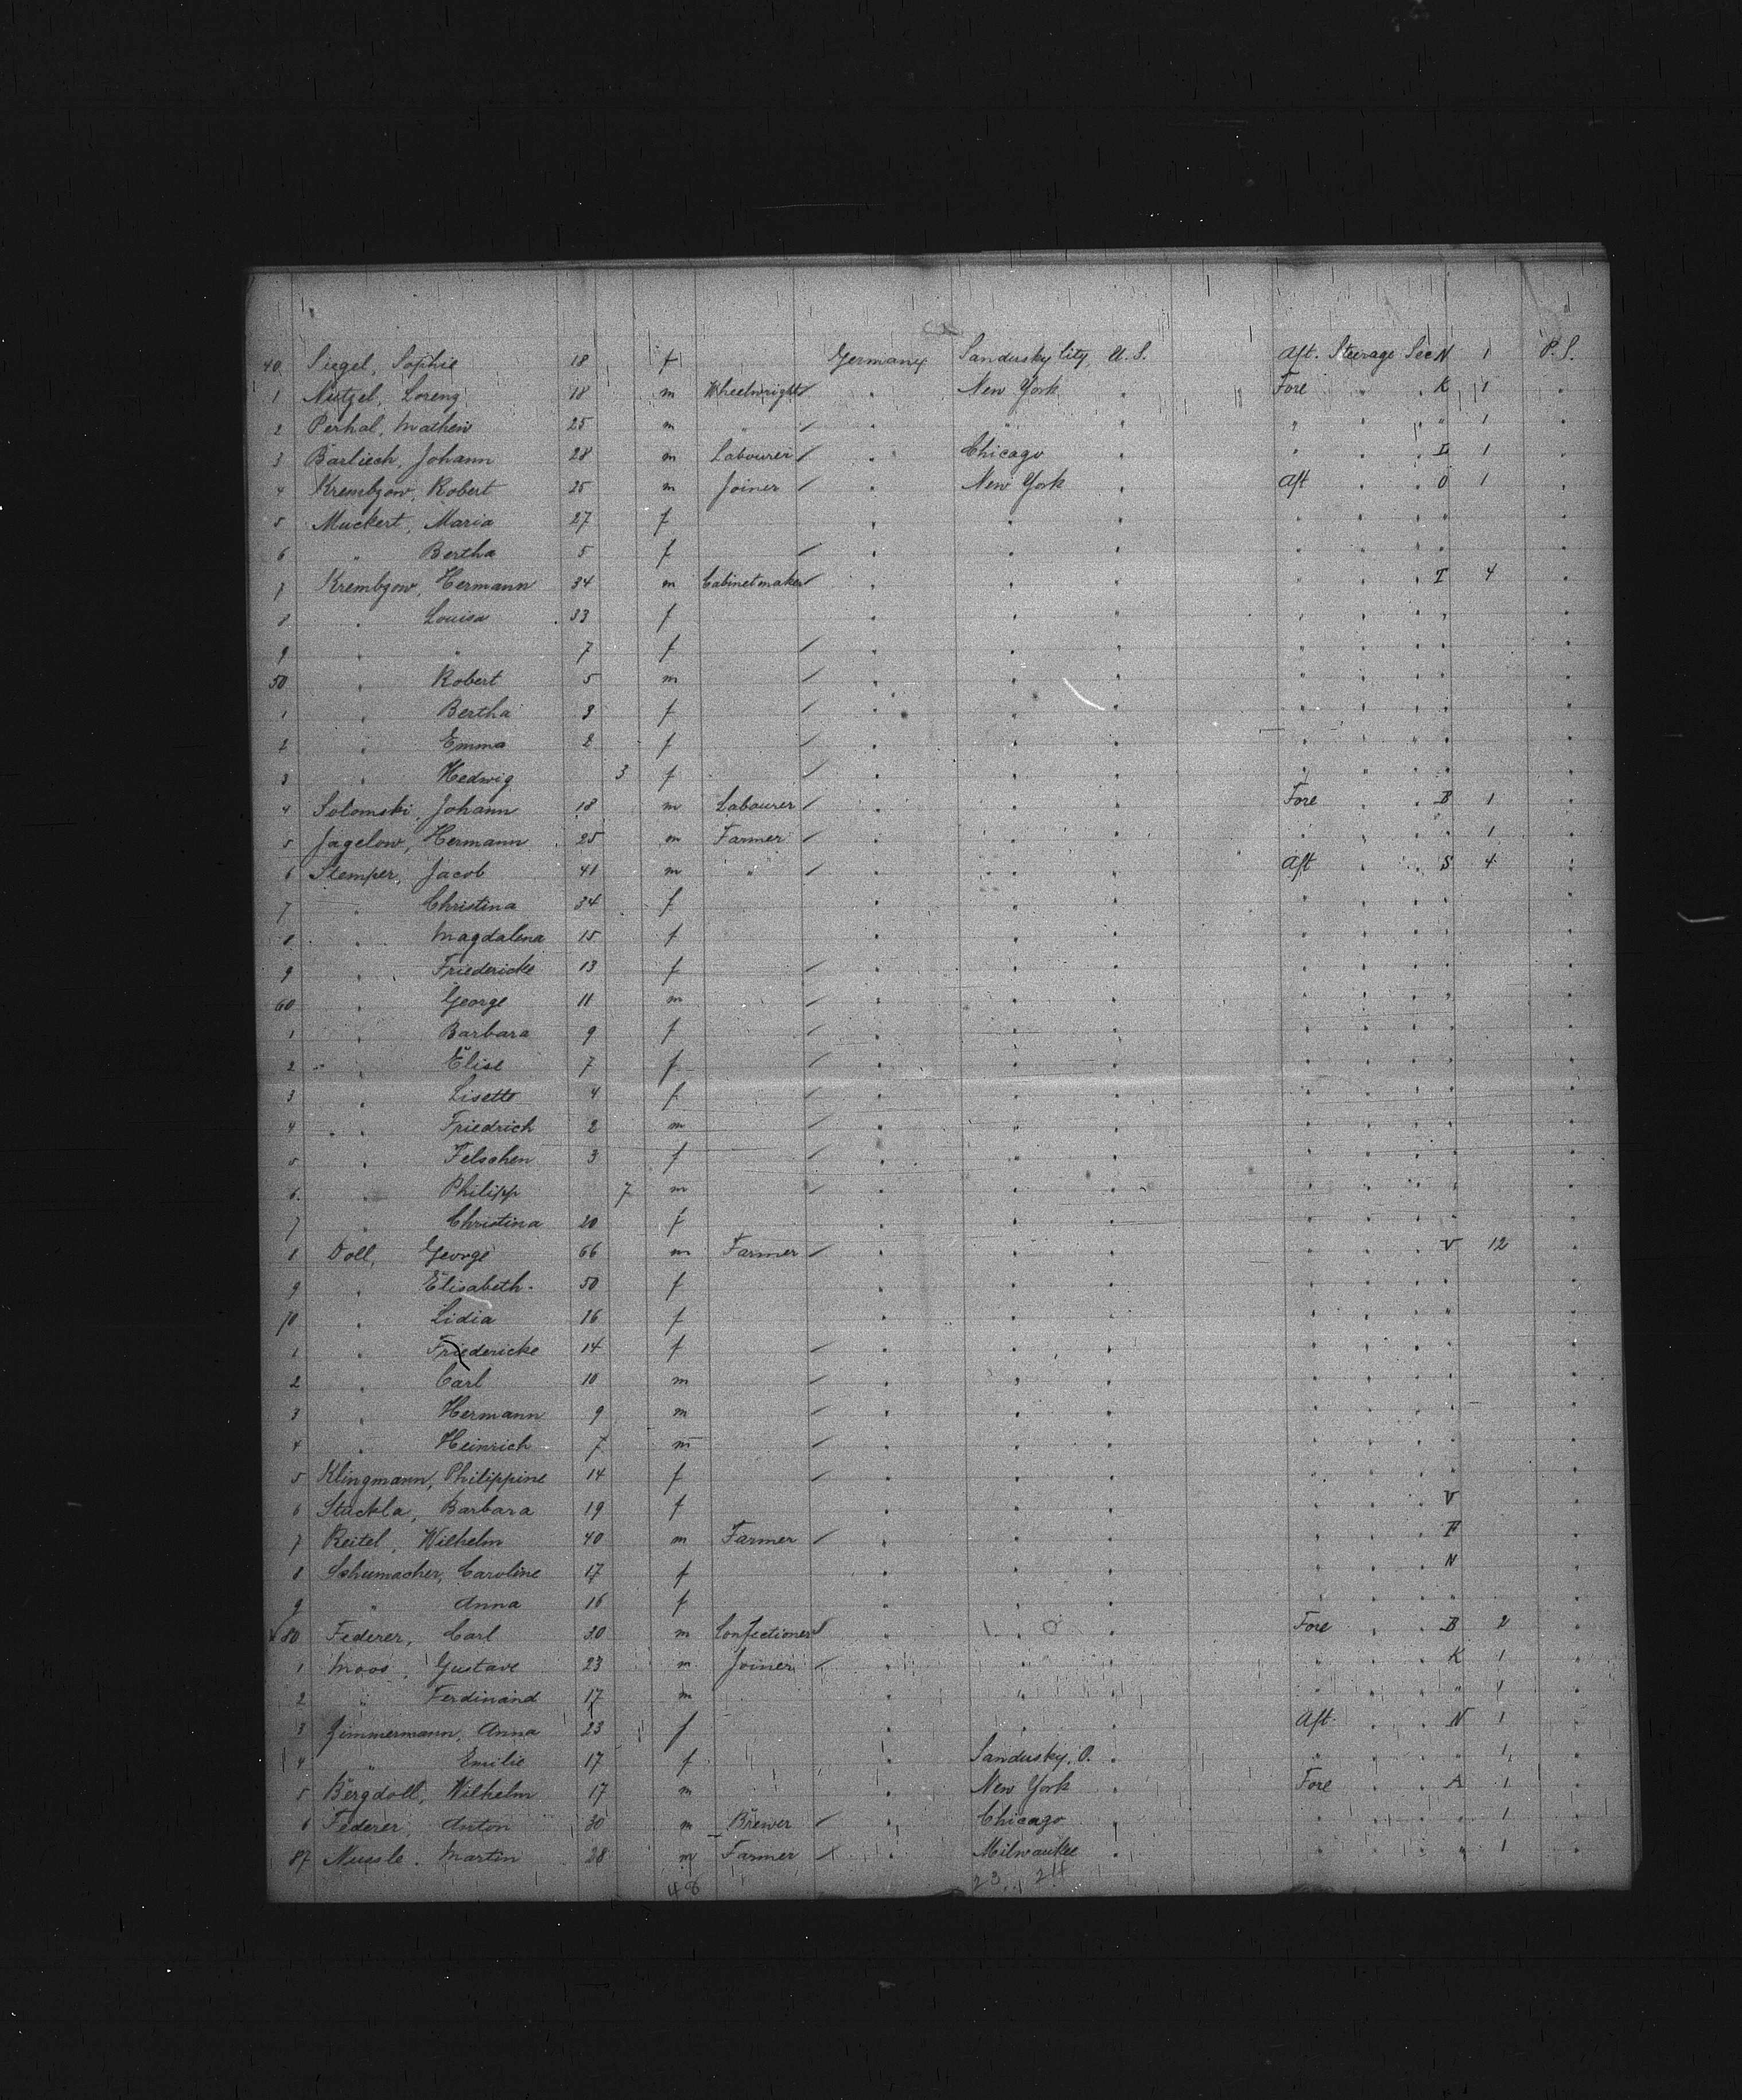 40 Siegel, Sophie 18 f Germany Sandusky City, U.S. Aft. Steerage Sec N 1 P.S.
1 Nützel, Lorenz 18 m Wheelwright " New York " Fore " " K 1 "
2 Perhal, Mathein 25 m " " " " " " " " 1 "
3 Barliech, Johann 28 m Labourer " Chicago " " " " L 1 "
4 Krembzow, Robert 25 m Joiner " New York " Aft " " O 1 "
5 Muckert, Maria 27 f " " " " " " " "
6 " Bertha 5 f " " " " " " " "
7 Krembzow, Hermann 34 m Cabinetmaker " " " " " " T 4 "
8 " Louisa 33 f " " " " " " " "
9 " " 7 f " " " " " " " "
50 " Robert 5 m " " " " " " " "
1 " Bertha 3 f " " " " " " " "
2 " Emma 2 f " " " " " " " "
3 " Hedwig 3 f " " " " " " " "
4 Solomski, Johann 18 m Labourer " " " Fore " " B 1 "
5 Jagelow, Hermann 25 m Farmer " " " " " " " 1 "
6 Stemper, Jacob 41 m " " " " Aft " " S 4 "
7 " Christina 34 f " " " " " " " "
8 " Magdalena 15 f " " " " " " " "
9 " Friedericke 13 f " " " " " " " "
60 " George 11 m " " " " " " " "
1 " Barbara 9 f " " " " " " " "
2 " Elise 7 f " " " " " " " "
3 " Lisette 4 f " " " " " " " "
4 " Friedrich 2 m " " " " " " " "
5 " Felschen 3 f " " " " " " " "
6 " Philipp 7 m " " " " " " " "
7 " Christina 20 f " " " " " " " "
8 Doll, George 66 m Farmer " " " " " " V 12 "
9 " Elisabeth 50 f " " " " " " " "
70 " Lidia 16 f " " " " " " " "
1 " Friedericke 14 f " " " " " " " "
2 " Carl 10 m " " " " " " " "
3 " Hermann 9 m " " " " " " " "
4 " Heinrich 7 m " " " " " " " "
5 Klingmann, Philippine 14 f " " " " " " " "
6 Stuckla, Barbara 19 f " " " " " " V "
7 Reitel, Wilhelm 40 m Farmer " " " " " " F "
8 Schumacher, Caroline 17 f " " " " " " N "
9 " Anna 16 f " " " " " " " "
80 Federer, Carl 30 m Confectioner " " " Fore " " B 2 "
1 Moos, Gustave 23 m Joiner " " " " " " K 1 "
2 " Ferdinand 17 m " " " " " " " 1 "
3 Zimmermann, Anna 23 f " " " Aft. " " N 1 "
4 " Emilie 17 f " Sandusky, O. " " " " " 1 "
5 Bergdoll, Wilhelm 17 m " New York " Fore " " A 1 "
6 Federer, Anton 30 m Brewer " Chicago " " " " " 1 "
87 Nussle. Martin 28 m Farmer " Milwaukee " " " " " 1 "
48 23 24